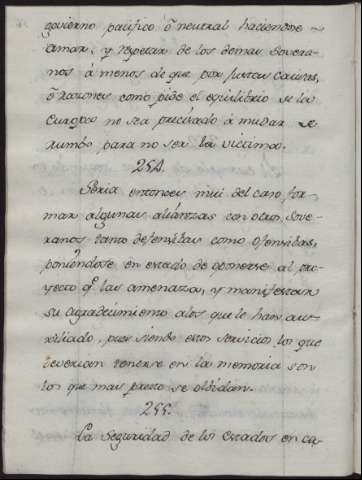 govierno pacifico ô neutral haciendose
amar, y respetar de los demas Sovera-
nos á menos de que por justas causas,
ô razones como pide el equilibrio de la
Europa no sea precisado à mudar de
rumbo para no ser la victima.
254.
Seria entonces mui del caso for-
mar algunas alianzas con otros Sove-
ranos tanto defensibas como ofensibas,
poniendose en estado de oponerse al pro-
yecto qe. las amenaza, y manifestar
su agradecimiento alos que le han au-
xiliado, pues siendo estos servicios los que
deverian tenerse en la memoria son
los que mas presto se olbidan.
255.
La seguridad de los estados en ca-